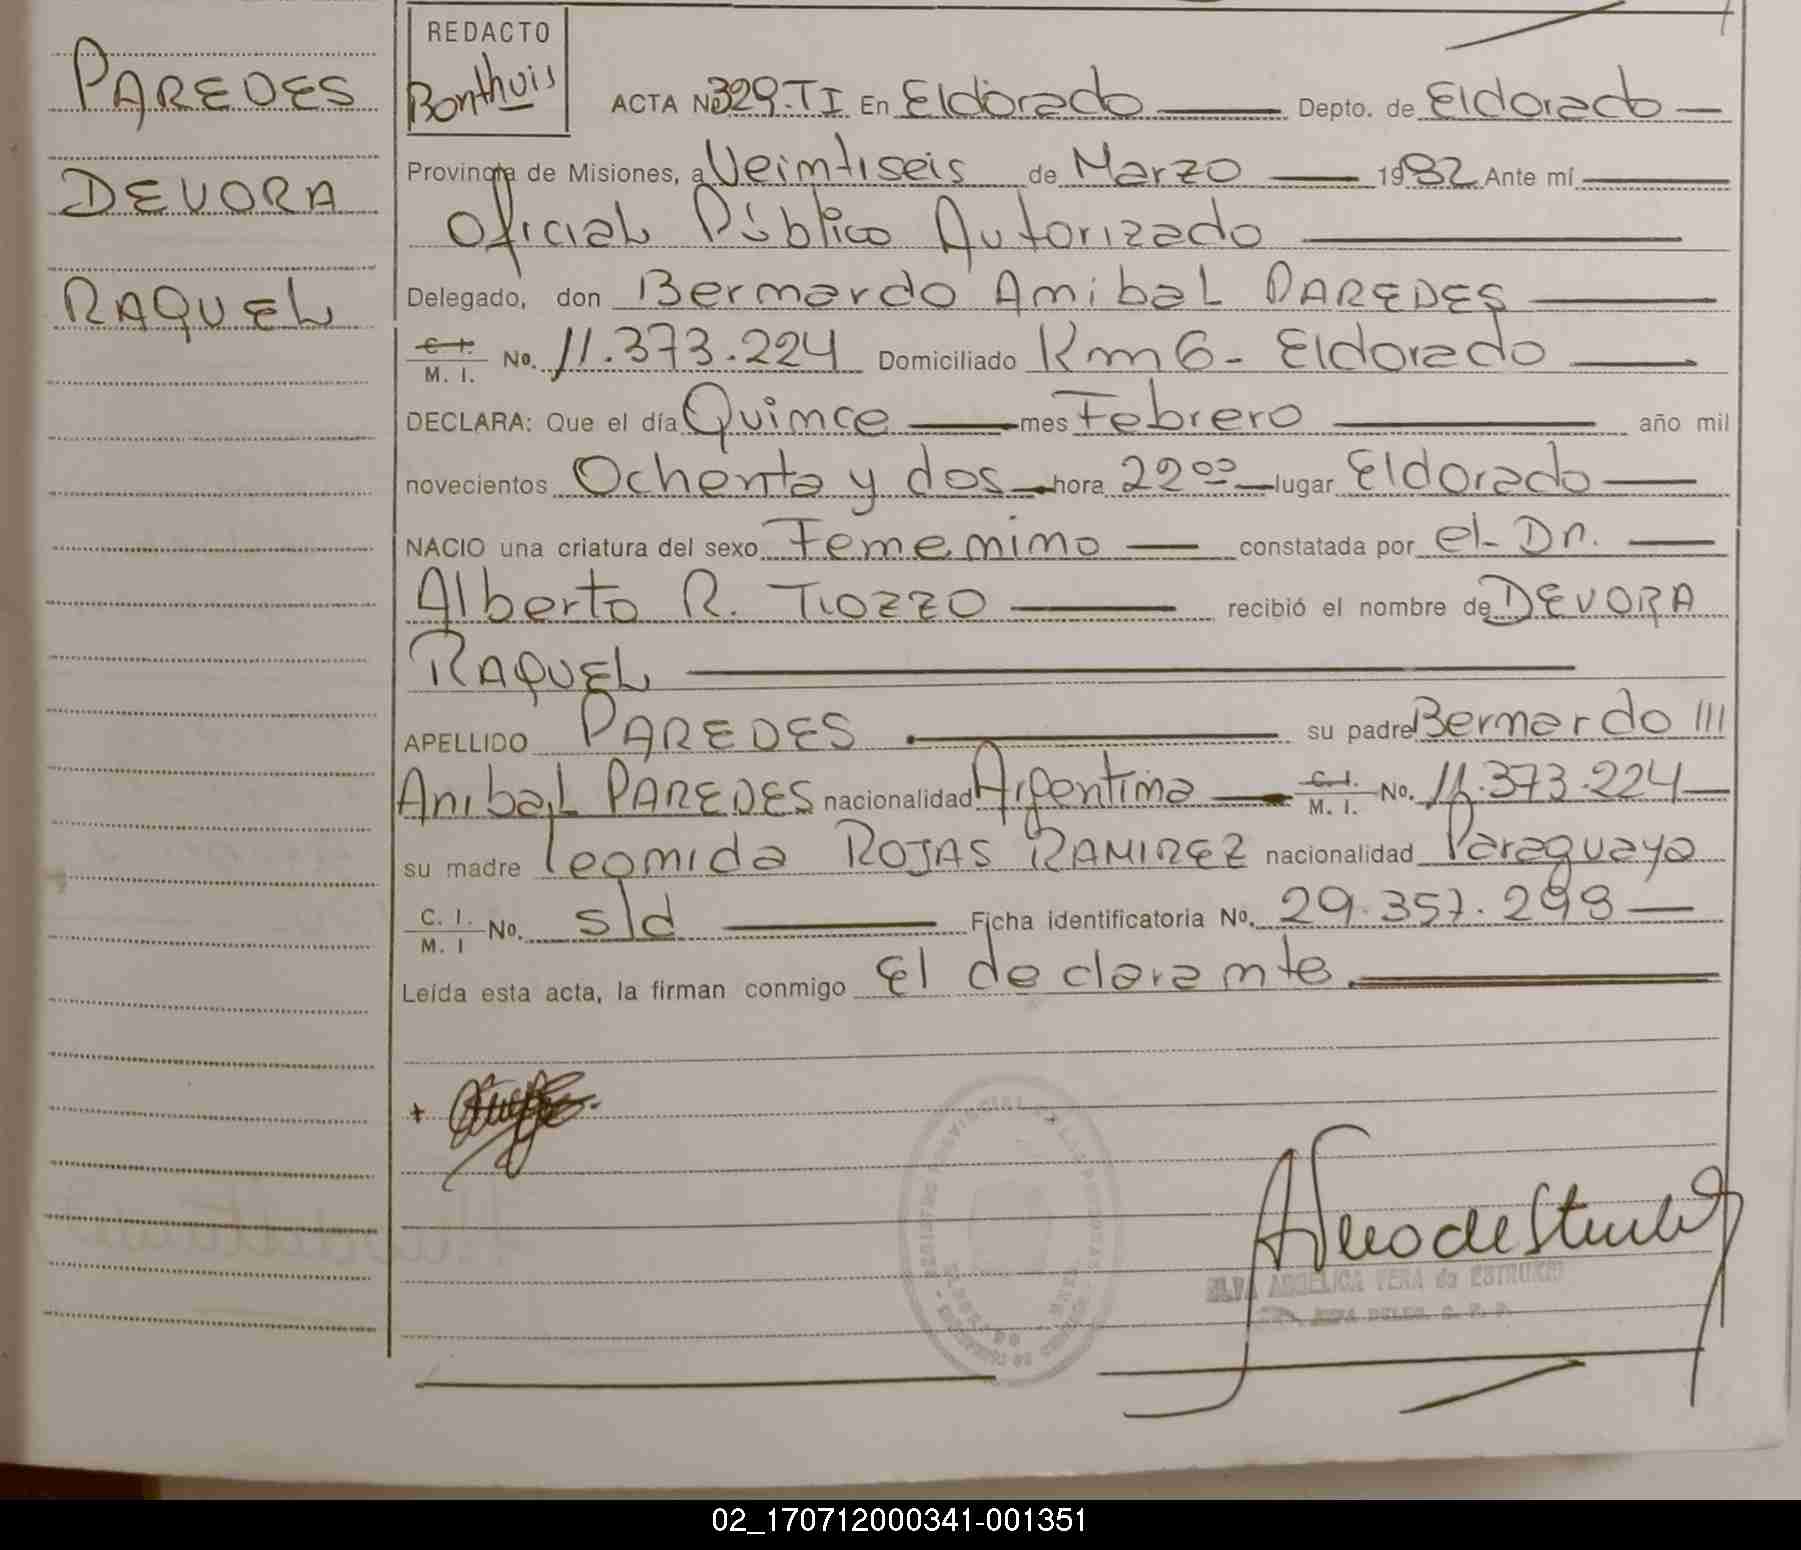 PAREDES
DEVORA
RAQUEL
REDACTO
Bonthuis
ACTA Nº 329.TI En Eldorado Depto. de Eldorado
Provincia de Misiones, a Veintiseis de Marzo 1982 Ante mí
Oficial Público Autorizado
Delegado, don Bernardo Anibal PAREDES
C. I. M. I. No. 11.373.224 Domiciliado Km 6 - Eldorado
DECLARA: Que el día Quince mes Febrero año mil
novecientos Ochenta y dos hora 22⁰⁰ lugar Eldorado
NACIO una criatura del sexo Femenino constatada por el Dr.
Alberto R. TIOZZO recibió el nombre de DEVORA
RAQUEL
APELLIDO PAREDES su padre Bernardo ///
Anibal PAREDES nacionalidad Argentina C. I. M. I. No. 11.373.224
su madre Leonida ROJAS RAMIREZ nacionalidad Paraguaya
C. I. M. I No. s/d Ficha identificatoria No. 29.357.299
Leída esta acta, la firman conmigo El declarante
ELVA ANGELICA VERA de ESTRUKEI
02_170712000341-001351